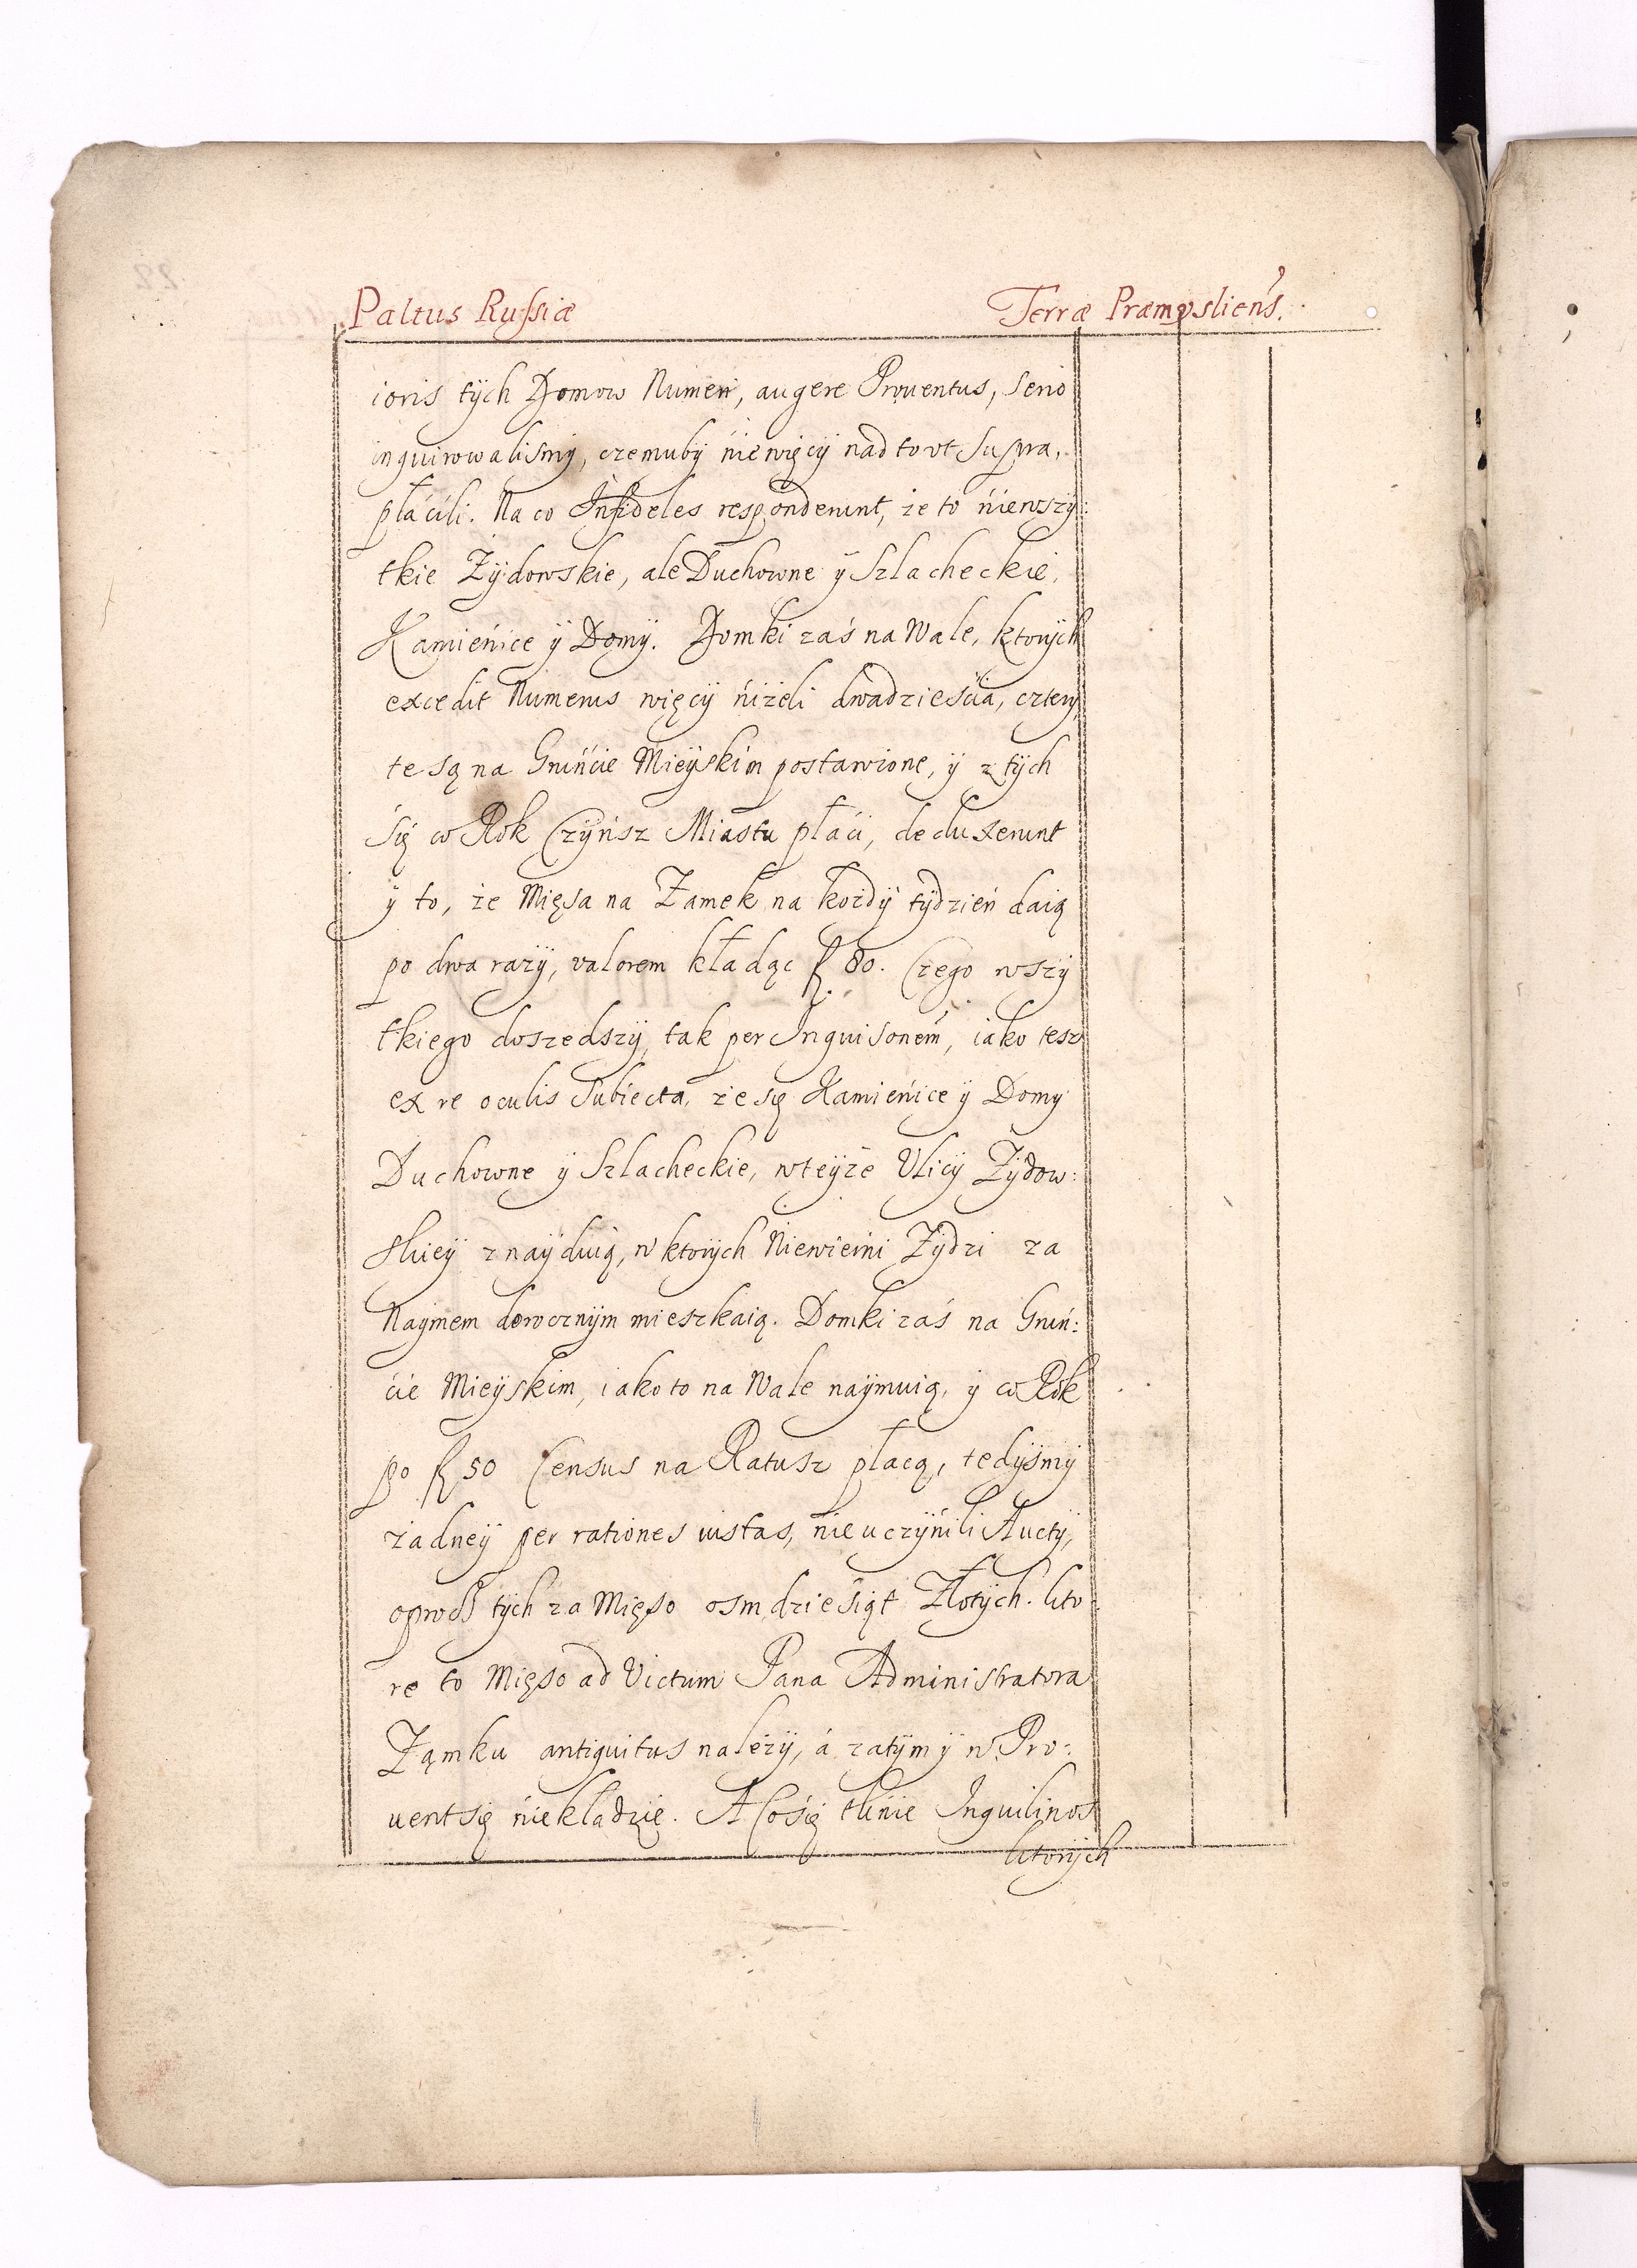 Paltus Russiæ Terræ Præmysliens̃.
ioris tÿch Domow Numeri, augere Prouentus, serio
inquirowalismÿ, czemubÿ niewięcÿ nad to vt supra,
płaćili. Na co Infideles responderunt, że to niewszÿ:
tkie Żÿdowskie, ale Duchowne ÿ Szlacheckie,
Kamienice ÿ Domÿ. Domki zaś na Wale, ktorÿch
excedit Numerus więcÿ niżeli dwadzieścia, czterÿ
te są na Gruńcie Mieÿskim postawione, ÿ z tÿch
się co Rok Czÿnsz Miastu płaći, deduxerunt
ÿ to, że Mięsa na Zamek na kożdÿ tÿdzień daią
po dwa razÿ, valorem kładąc f 80. Czego wszÿ
tkiego doszedszÿ, tak per Inquisonem̃, iako tesz
ex re oculis subiecta, że się Kamienice ÿ Domy
Duchowne ÿ Szlacheckie, w teÿże Vlicÿ Żÿdow:
skieÿ znaÿduią, w ktorÿch Niewierni Żÿdzi za
Naÿmem dorocznÿm mieszkaią. Domki zaś na Gruń:
cie Mieÿskim, iako to na Wale naÿmuią, ÿ co Rok
po f 50 Census na Ratusz płacą, tedÿsmÿ
żadneÿ per rationes iustas, nie uczÿnili Auctÿ,
oprocz tÿch za Mięso osmdziesiąt Złotÿch. kto:
re to Mięso ad Victum Pana Administratora
Ząmku antiquitus należÿ, á zatÿm ÿ w Pro:
uent się niekładzie. A Cosię tknie Inquilinos
ktorÿch